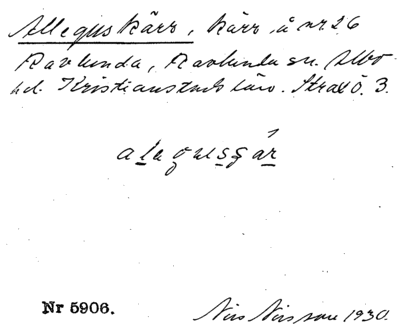 Allequskärr, kärr, å nr 26
Ravlunda, Ravlunda sn. Albo
hd. Kristianstads län. Strax ö. 3.
alequsgár
Nr 5906.
Nils Nilsson 1930.